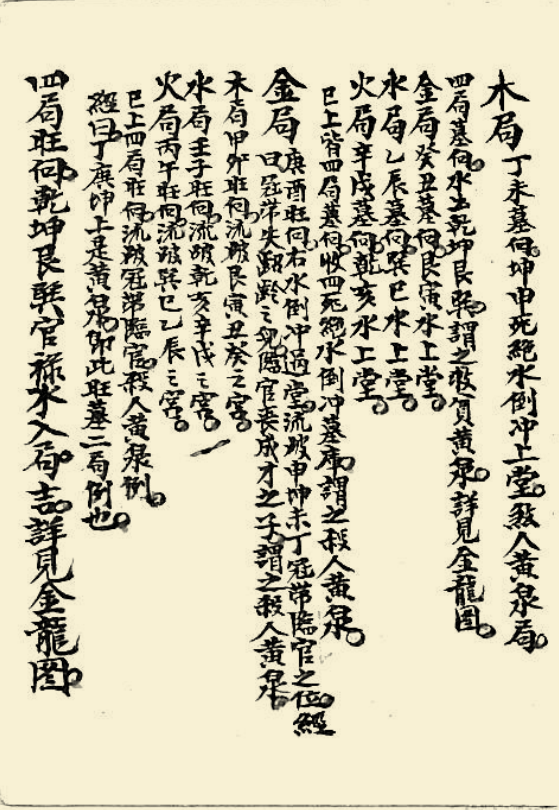 木局丁未墓向坤申死絕水倒冲上堂殺人黃泉局
四局墓向水去乾坤艮巽謂之救貧黃泉詳見金龍圖
金局癸丑墓向艮寅水上堂
水局乙辰墓向巽巳水上堂
火局辛戌墓向乾亥水上堂
已上皆四局墓向收四死絕水倒冲墓庫謂之殺人黃泉
金局庚酉旺向右水倒冲過堂流破申坤未丁冠帶臨官之位經
曰冠帶失齠齡之兒臨官喪成才之子謂之殺人黃泉
木局甲卯旺向流破艮寅丑癸之害
水局壬子旺向流破乾亥辛戌之害
火局丙午旺向流破巽巳乙辰之害
已上四局旺向流破冠帶臨官殺人黃泉例
經曰丁庚坤上是黃泉即此旺墓二局例也
四局旺向乾坤艮巽官祿水入局吉詳見金龍圖